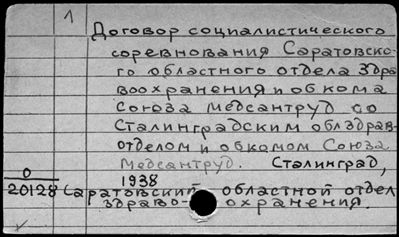 1
Договор социалистического
соревнования Саратовско-
го областного отдела Здра
воохранения и обкома
Союза Медсантруд со
Сталинградским облздрав-
отделом и обкомом Союза
Медсантруд. Сталинград,
1938
0
20128 Саратовский областной отдел
здраво-охранения.